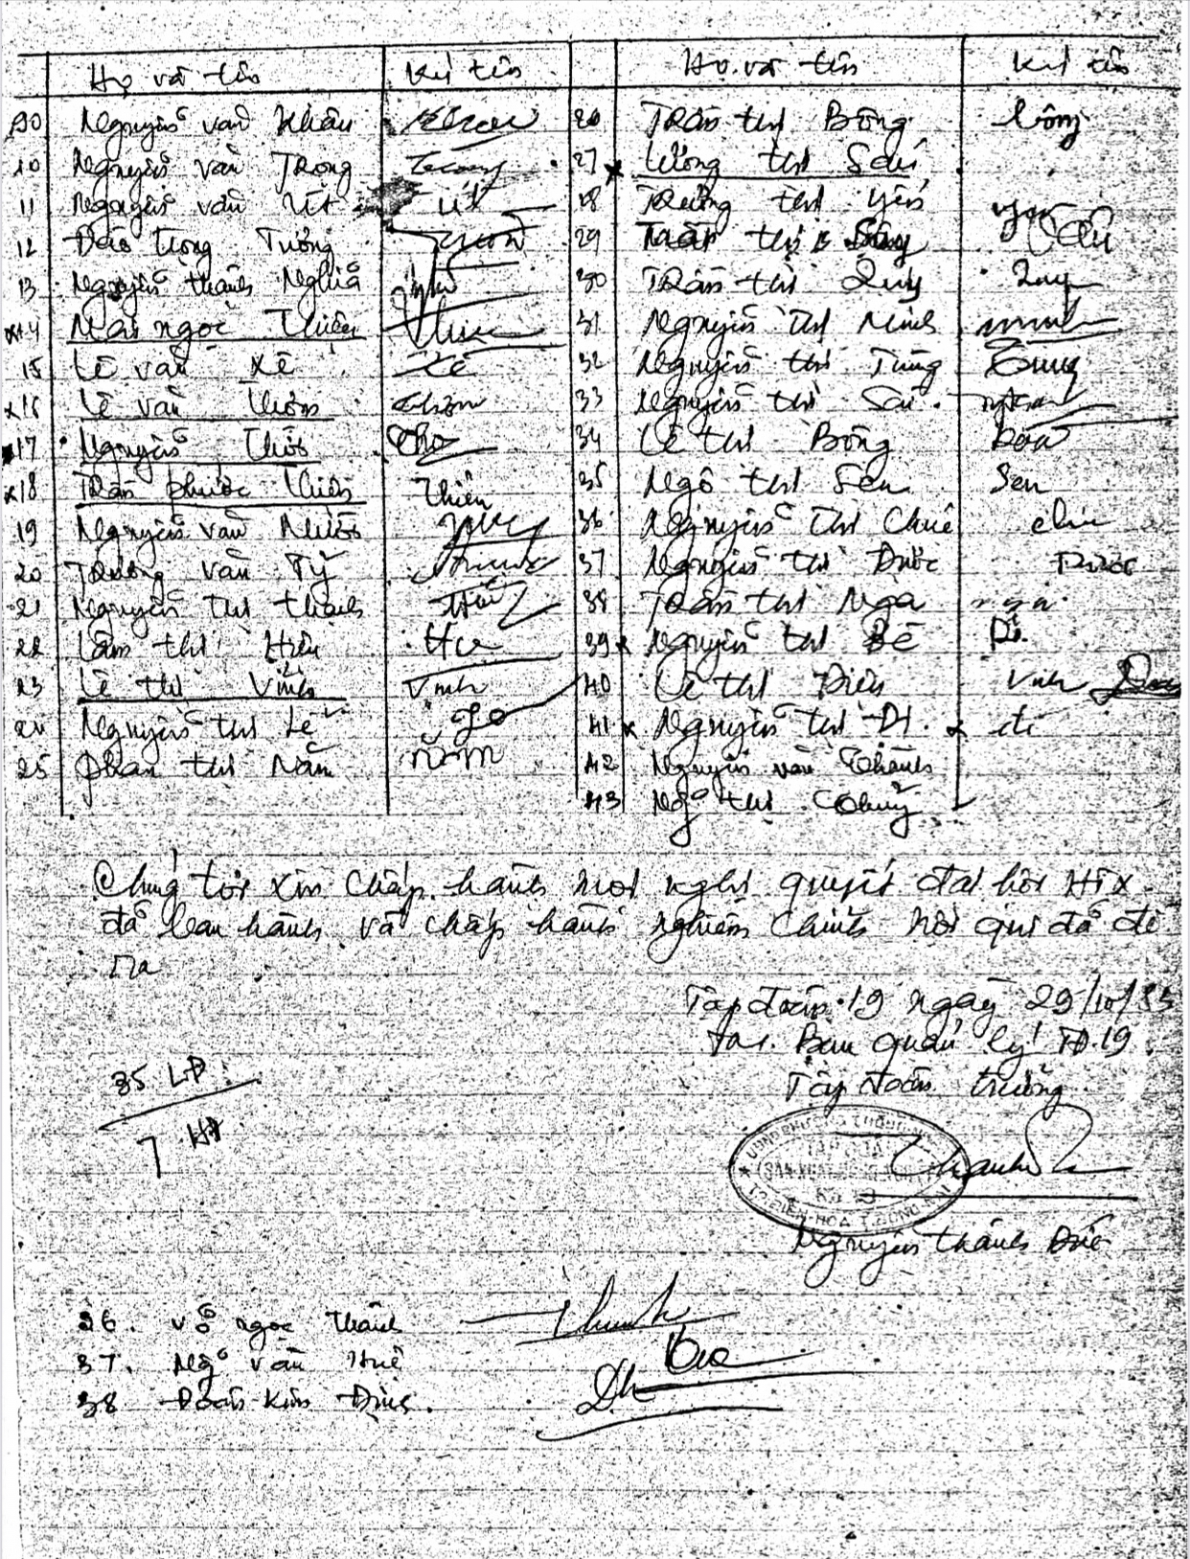 Họ và tên Ký tên Họ và tên Ký tên
Nguyễn văn Khâu 26 Trần thị Bông bông
10 Nguyễn văn Trọng Trọng 27 x Lương thị Sáu
11 Nguyễn văn Út Út 28 Trương thị Yến yến
12 Đào trọng Tường 29 Trần thị
13 Nguyễn thành Nghĩa 30 Trần thị Quý Quý
x14 Mai ngọc Thiên 31 Nguyễn thị Minh minh
15 Lê văn Xê Xê 32 Nguyễn thị Tùng Tùng
x16 Lê văn Thơm Thơm 33 Nguyễn thị Sáu
x17 Nguyễn Thọ 34 Lê thị Bông
x18 Trần phước Thiên Thiên 35 Ngô thị Sen Sen
19 Nguyễn văn Mười 36 Nguyễn thị Chuê
20 Trương văn Tỷ 37 Nguyễn thị Được Được
21 Nguyễn thị thanh 38 Trần thị Nga nga
22 Lâm thị Hiêu 39 x Nguyễn thị Bé
23 Lê thị Vinh Vinh 40 Lê thị Diên
24 Nguyễn thị Lê 41 x Nguyễn thị Đi x đi
25 Phan thị Năm năm 42 Nguyễn văn Thành
43 Ngô thị
Chúng tôi xin chấp hành mọi nghị quyết đại hội HTX
đã ban hành và chấp hành nghiêm chỉnh nội qui đã đề
ra
Tập đoàn 19 ngày 29/10/83
T/M. Ban quản lý TĐ.19
Tập đoàn trưởng
35 LĐ
7
TẬP ĐOÀN
T.P BIÊN-HÒA T.ĐỒNG NAI
Nguyễn thành Đức
36. Võ ngọc Thành
37. Ngô văn Huê
38 Đoàn Kim